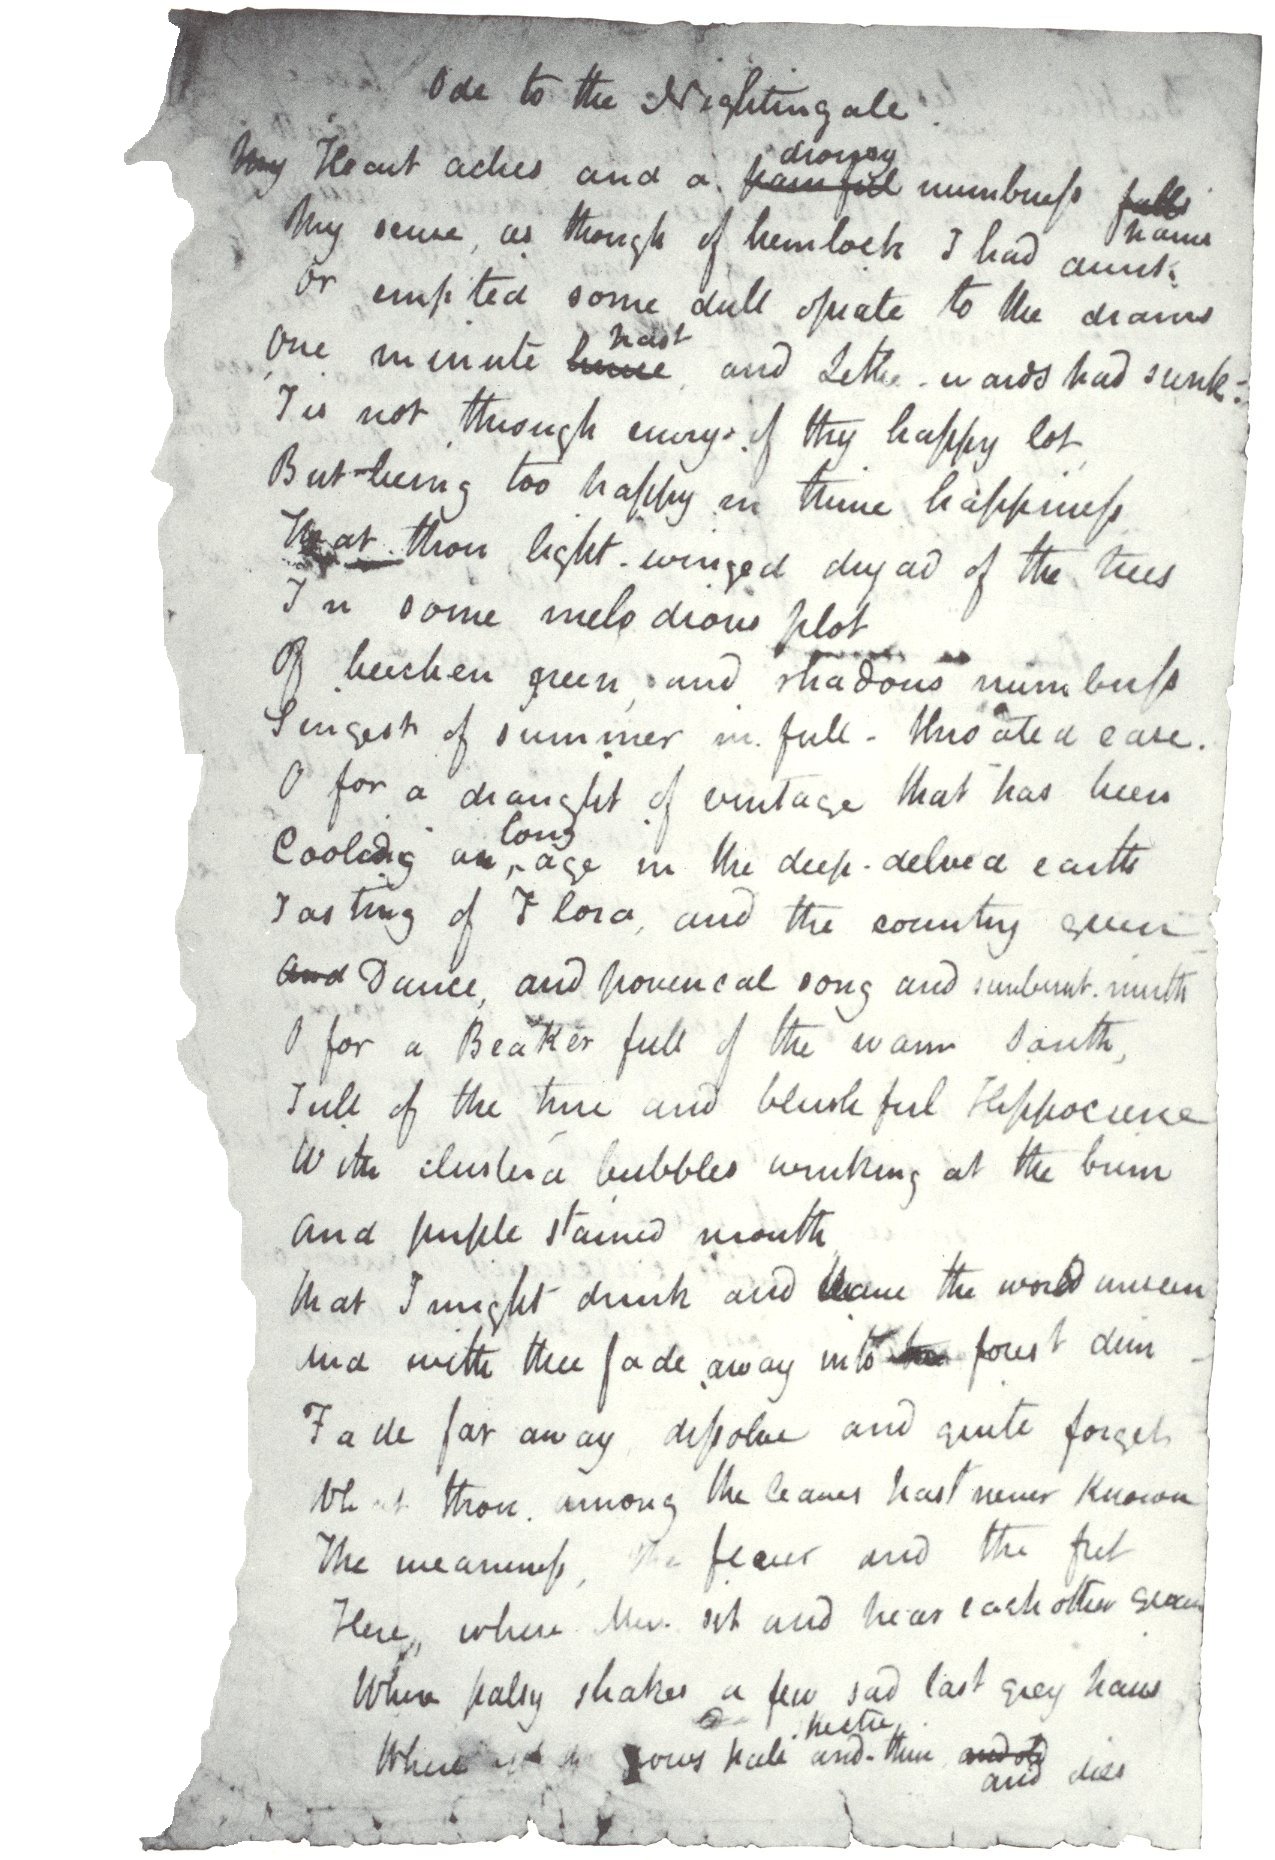 Ode to the Nightingale.
My Heart aches and a painful drowsy numbness falls pains
My sense, as though of hemlock I had drunk
Or emptied some dull opiate to the drains
One minute hence past, and Lethe-wards had sunk:
Tis not through envy of thy happy lot
But being too happy in thine happiness
That thou light-winged dryad of the trees
In some melodious plot
Of beechen green, and shadows numberless
Singest of summer in full-throated ease.
O for a draught of vintage that has been
Cooling an long age in the deep-delved earth
Tasting of Flora, and the country green
And Dance, and provencal song and sunburnt mirth
O for a Beaker full of the warm South,
Full of the true and blushful Hippocrene
With cluster'd bubbles winking at the brim
And purple stained mouth
That I might drink and leave the world unseen
And with thee fade away into the forest dim
Fade far away, dissolve and quite forget
What thou among the leaves hast never known
The weariness, the fever and the fret
Here, where Men sit and hear each other groan
Where palsy shakes a few sad last grey hairs
Where grows pale and thin and old and dies